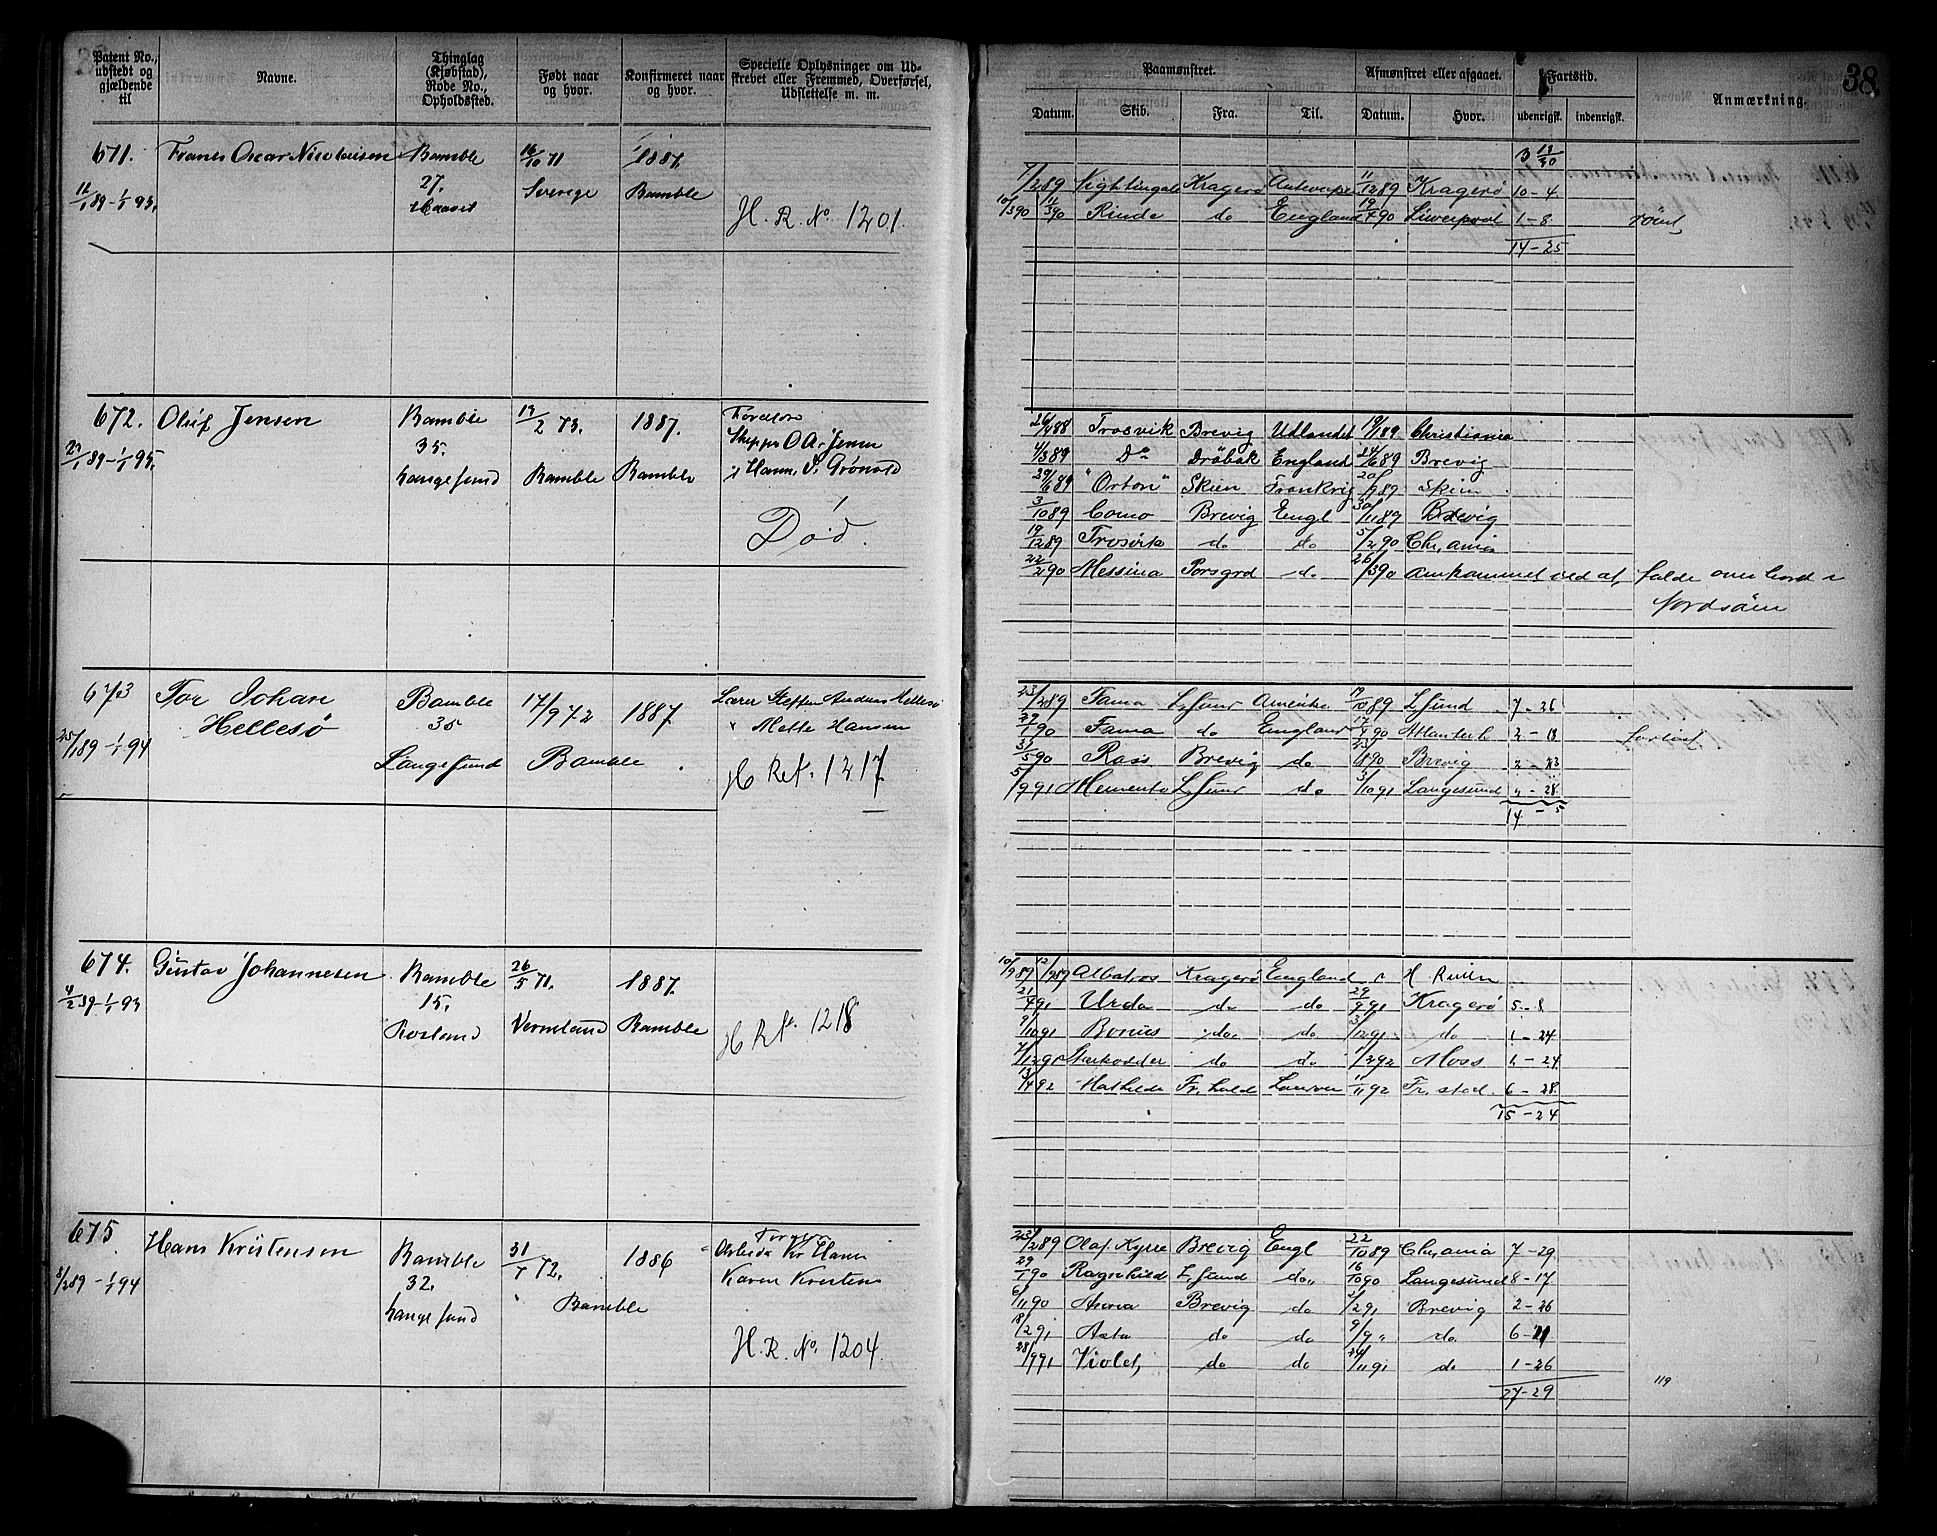 Patent No., udstedt og gjældende til
Navne.
Thinglag (Kjøbstad), Rode No., Opholdssted.
Født naar og hvor.
Konfirmeret naar og hvor.
Specielle Oplysninger om Udskrevet eller Fremmed, Overførsel, Udslettelse m. m.
Paamønstret.
Afmønstret eller afgaaet.
Fartstid.
Anmærkning.
38.
Datum. Skib. Fra. Til. Datum. Hvor. udenrigsk. indenrigsk.
671. Frants Oscar Nicolaisen Bamble 16/10 71 1887.
27. Sverige Bamble
11/1 89 – 1/1 93.
H. R. No. 1201.
3 13/30
7/2 89 Nightingale Kragerø Antwerpen 11/12 89 Kragerø 10 – 4.
10/3 90 11/3 90 Rinde do England 19/4 90 Liverpool 1 – 8 rømt
14 – 25
672. Oluf Jensen Bamble 19/2 73. 1887. Forældre
35. Skipper O A Jensen
Langesund Bamble Bamble
Død.
26/4 88 Trosvik Brevig Udlandet 19/1 89 Christiania
4/3 89 Do Drøbak England 24/6 89 Brevig
29/6 89 "Orton" Skien Frankrig 20/9 89 Skien
3/10 89 Como Brevig Engl 30/11 89 Brevig
19/12 89 Trosvik do do 5/2 90 Chr,ania
22/2 90 Messina Porsgrd do 26/3 90 omkommet ved at falde over bord i
Nordsøen
673 Tor Johan Bamble 17/9 72 1887. Lærer Steffen Andreas Hellesø
Hellesø 35 Mette Hansen
25/1 89 – 1/1 94 Langesund Bamble.
H Ref. 1217
23/2 89 Fama L,sund Amerika 19/10 89 L,sund 7 – 26
29/1 90 Fama do England 17/4 90 Atlanterh 2 – 18 forlist
31/5 90 Ross Brevig do 23/8 90 Brevig 2 – 23
5/9 91 Memento L,sund do 3/10 91 Langesund
14 – 5
674. Gustav Johannesen Bamble 26/5 71. 1887.
15.
4/2 89 – 1/1 93 Rorland Vermland Bamble
H Rf. 1218
10/9 89 12/9 89 Albatros Kragerø England
21/4 91 Urda do do 29/9 91 Kragerø 5 – 8
9/10 91 Bonus do do 3/12 91 do 1 – 24
7/12 91 Starkodder do do 1/2 92 Moss 1 – 24
13/4 92 Mathilde Fr.hald 11/11 92 Fr.stad. 6 – 28.
15 – 24
675 Hans Kristensen Bamble 31/7 72. 1886
32.
8/2 89 – 1/1 94 Langesund Bamble
Karen Kristens
H. R. No. 1204.
23/2 89 Olaf Kyrre Brevig Engl 22/10 89 Chr,ania 7 – 29
29/1 90 Ragnhild L,sund do 16/10 90 Langesund 8 – 17
6/11 90 Anna Brevig do 2/2 91 Brevig 2 – 26
18/2 91 Asta do do 9/9 " do 6 – 21
28/9 91 Violet, do do 24/11 91 do 1 – 26
27 – 29
119